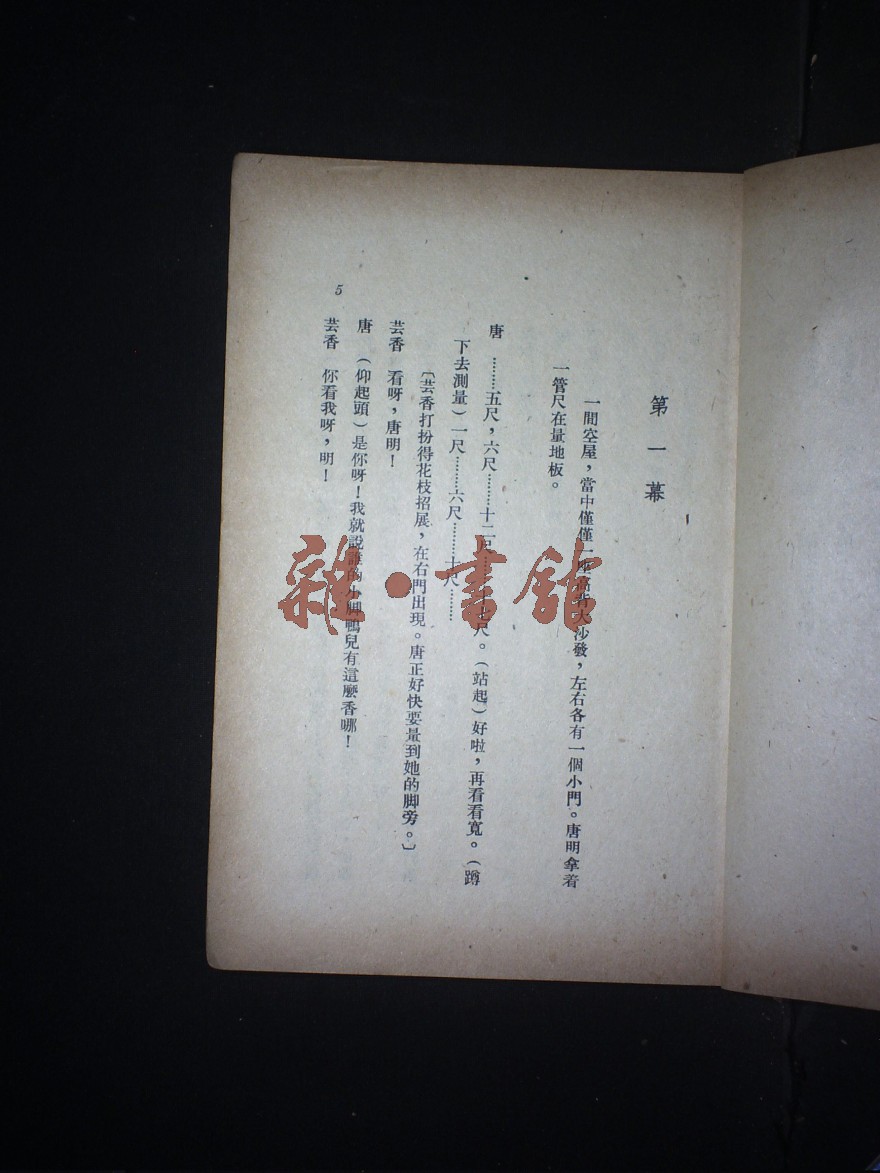 第一幕
一間空屋，當中僅僅一座高背大沙發，左右各有一個小門。唐明拿着
一管尺在量地板。
唐　………五尺，六尺………十二尺………尺。（站起）好啦，再看看寬。（蹲
下去測量）一尺………六尺………十尺………
〔芸香打扮得花枝招展，在右門出現。唐正好快要量到她的脚旁。〕
芸香　看呀，唐明！
唐　（仰起頭）是你呀！我就說誰的小脚鴨兒有這麼香哪！
芸香　你看我呀，明！
5
雜·書館